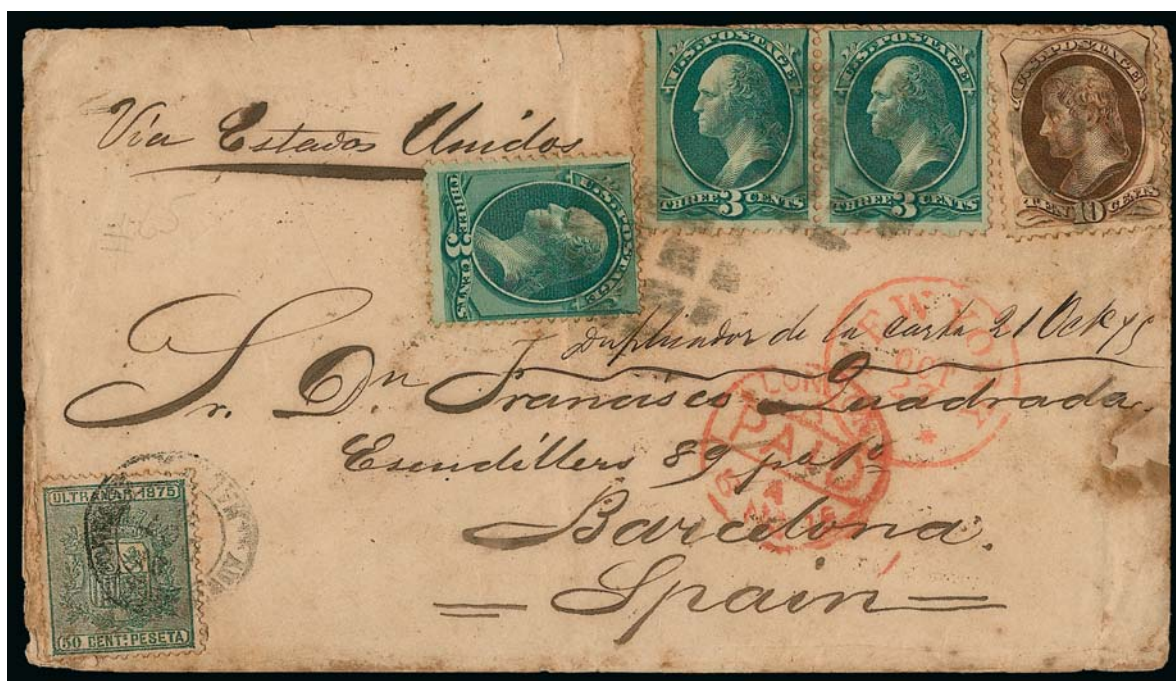 U.S. POSTAGE
THREE 3 CENTS
U.S. POSTAGE
THREE 3 CENTS
U.S. POSTAGE
TEN 10 CENTS
Via Estados Unidos
U.S. POSTAGE
THREE 3 CENTS
de la carta 21 Oct 75
NEW YORK
OCT
Sr. Dn Francisco Quadrada
LONDON
PAID
Escudillers 89
Barcelona.
Spain
ULTRAMAR 1875
50 CENTS PESETA